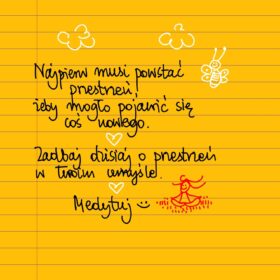 Najpierw musi powstać
przestrzeń,
żeby mogło pojawić się
coś nowego.
Zadbaj dzisiaj o przestrzeń
w Twoim umyśle.
Medytuj